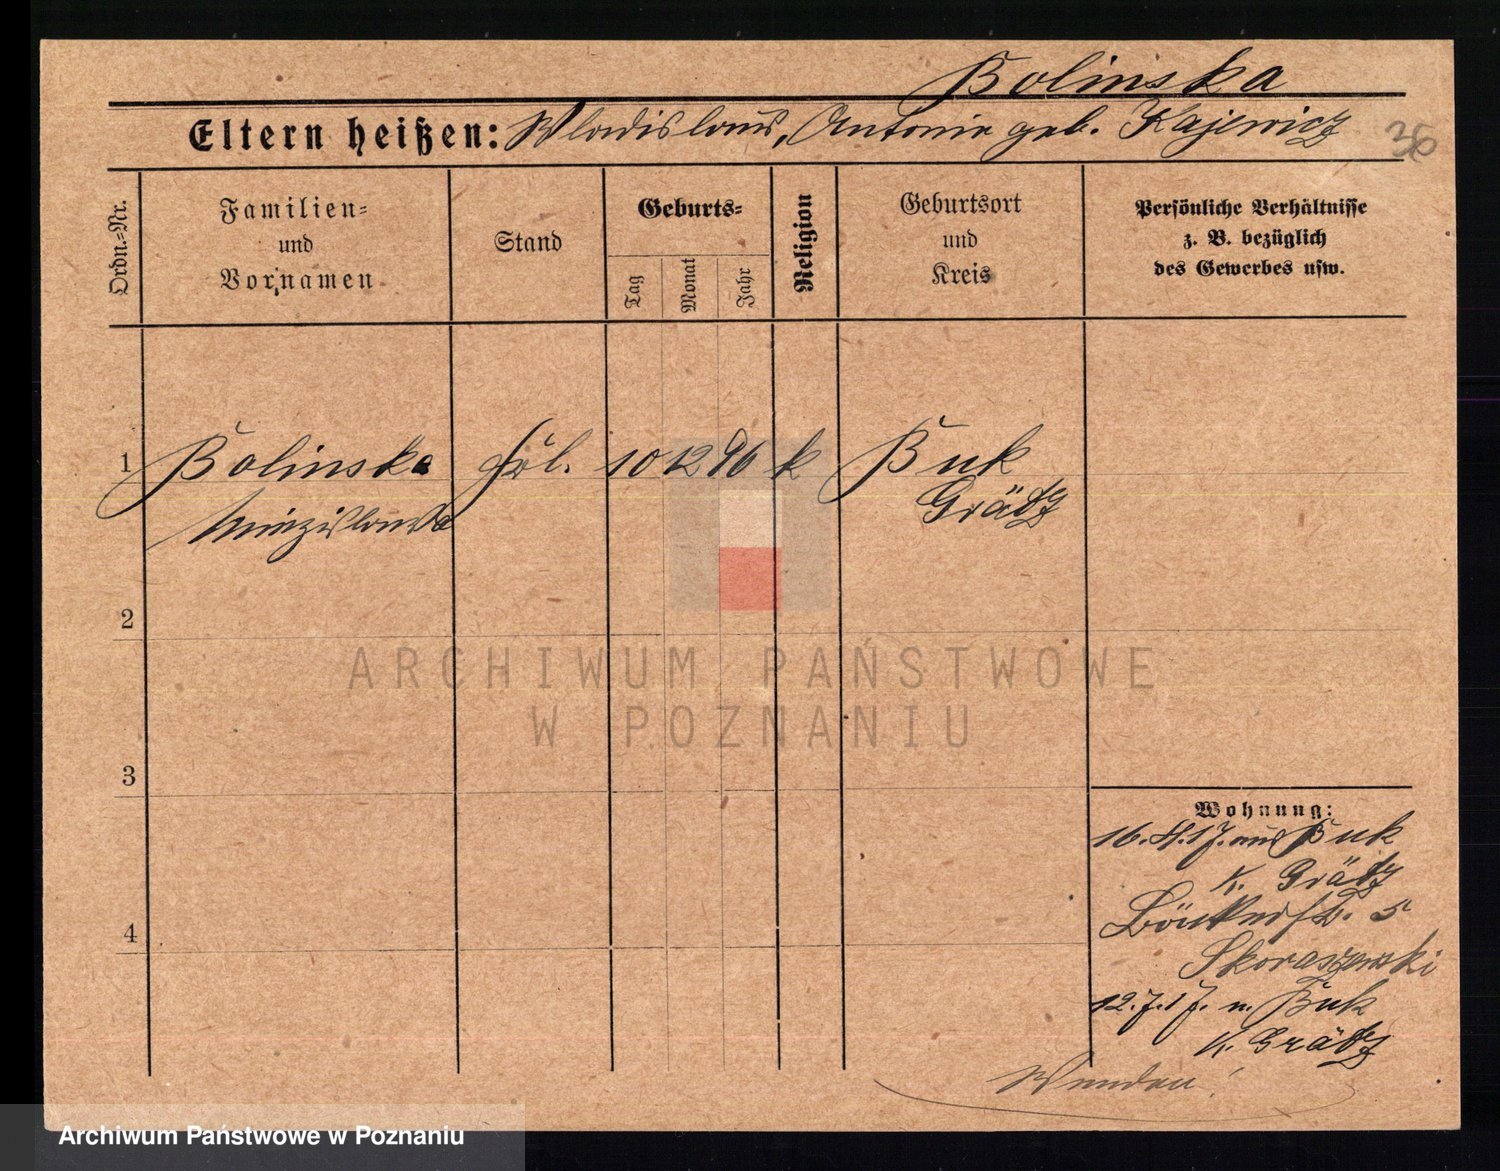 Bolinska
Eltern heißen: Wladislaus, Antonie geb. Kajewicz
36
Ordn.-Nr.
Familien-
und
Vornamen
Stand
Geburts-
Tag
Monat
Jahr
Religion
Geburtsort
und
Kreis
Persönliche Verhältnisse
z. B. bezüglich
des Gewerbes usw.
1 Bolinska Frl. 10 12 96 k Buk
Miezislawa Grätz
2
3
4
Wohnung:
16.4.17. aus Buk
K. Grätz
5
Skoraszewski
12.7.17. n. Buk
K. Grätz
Wenden!
ARCHIWUM PAŃSTWOWE
W POZNANIU
Archiwum Państwowe w Poznaniu